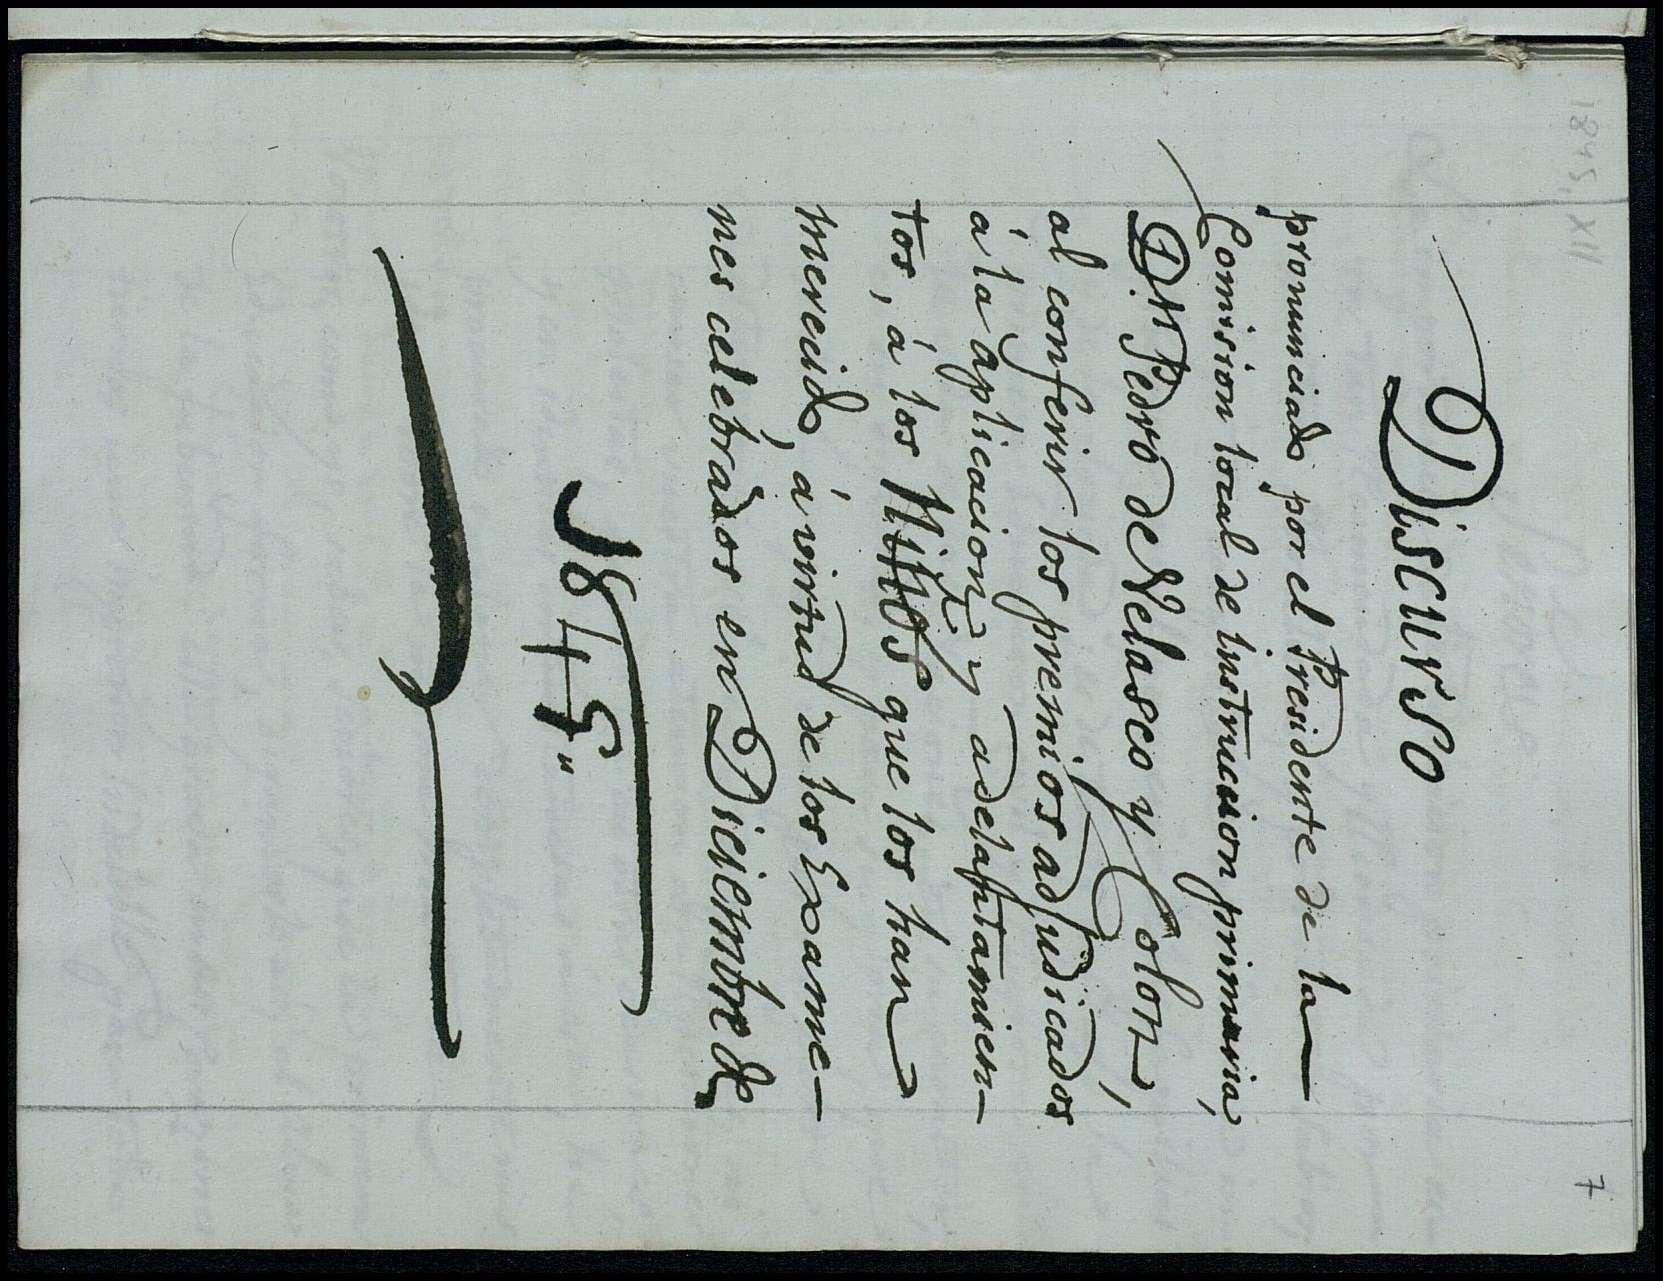 1845, XII
7
Discurso
pronunciado por el Presidente de la
Comision local de instruccion primaria,
D.n Pedro de Velasco y Colon,
al conferir los premios adjudicados
á la aplicacion y adelantamien-
tos, á los Niños que los han
merecido, á virtud de los Exame-
nes celebrados en Diciembre de
1845"